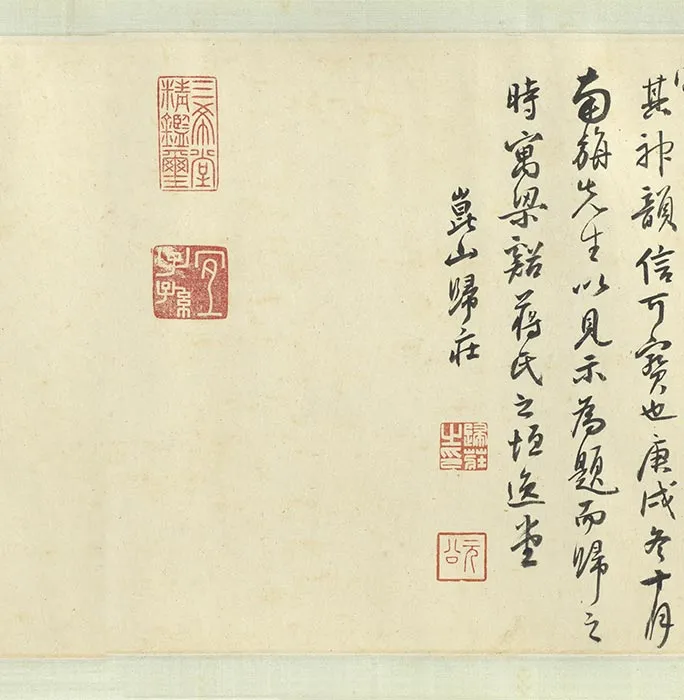 其神韻信可寶也庚戌冬十月
南旃先生以見示為題而歸之
時寓梁谿蔣氏之垣逸堂
崑山歸莊
歸莊之印
元公
三希堂精鑑璽
宜子孫